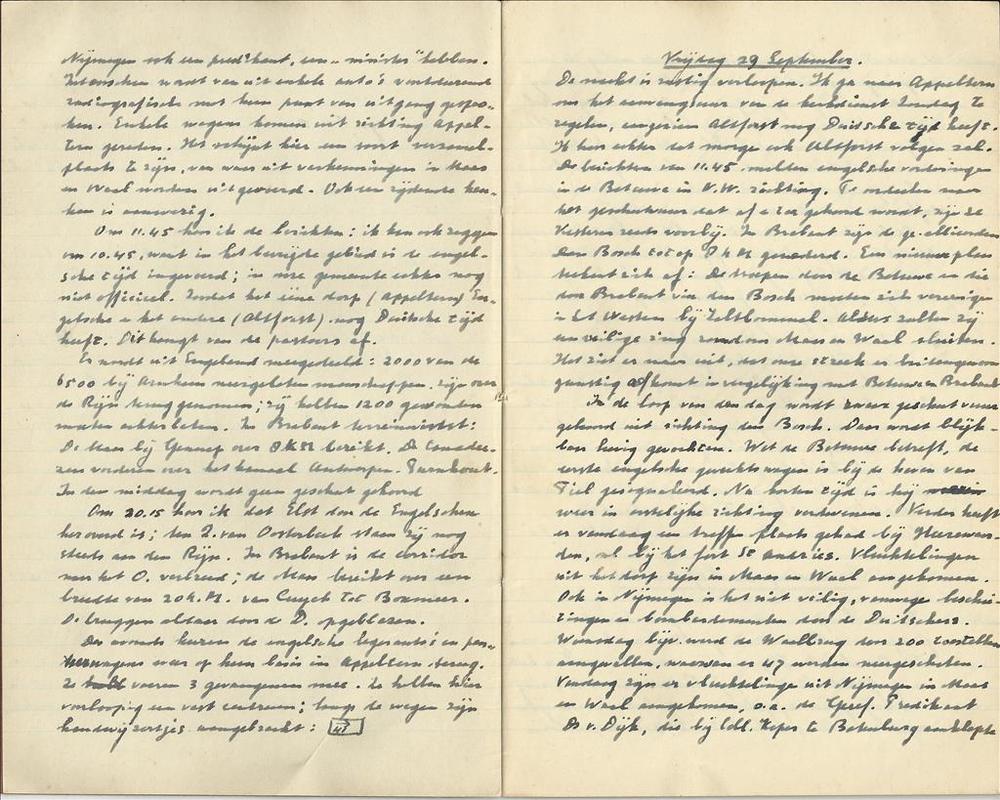 Nijmegen ook een predikant, een "minister" hebben.
Intusschen wordt van uit enkele auto's voortdurend
radiografisch met hun punt van uitgang gespro-
ken. Enkele wagens komen uit richting Appel-
tern gereden. Het schijnt hier een soort verzamel-
plaats te zijn, van waar uit verkenningen in Maas
en Waal worden uitgevoerd. Ook een rijdende keu-
ken is aanwezig.
Om 11.45 hoor ik de berichten: ik kan ook zeggen
om 10.45, want in het bevrijde gebied is de engel-
sche tijd ingevoerd; in onze gemeente echter nog
niet officieel. Zoodat het ééne dorp (Appeltern) En-
gelsche en het andere (Altforst) nog Duitsche tijd
heeft. Dit hangt van de pastoors af.
Er wordt uit Engeland meegedeeld: 2000 van de
6500 bij Arnhem neergelaten manschappen zijn over
de Rijn teruggenomen; zij hebben 1200 gewonden
moeten achterlaten. In Brabant terreinwinst:
De Maas bij Gennep over 8 KM bereikt. De Canadee-
zen vorderen over het kanaal Antwerpen-Turnhout.
In den middag wordt geen geschut gehoord
Om 20.15 hoor ik dat Elst door de Engelschen
heroverd is; ten Z. van Oosterbeek staan zij nog
steeds aan den Rijn. In Brabant is de corridor
naar het O. verbreed; de Maas bereikt over een
breedte van 20 K.M. van Cuyck tot Boxmeer.
De bruggen aldaar door de D. opgeblazen.
Des avonds keeren de engelsche legerauto's en pan-
serwagens naar hun basis in Appeltern terug.
Ze voeren 3 gevangenen mee. Ze hebben hier
voorloopig een vast centrum; langs de wegen zijn
handwijzertjes aangebracht: 47
Vrijdag 29 September.
De nacht is rustig verloopen. Ik ga naar Appeltern
om het aanvangsuur van de kerkdienst Zondag te
regelen, aangezien Altforst nog Duitsche tijd heeft.
Ik hoor echter dat morgen ook Altforst volgen zal.
De berichten van 11.45 melden engelsche vorderingen
in de Betuwe in N.W. richting. Te oordeelen naar
het geschutvuur dat af en toe gehoord wordt, zijn ze
Kesteren reeds voorbij. In Brabant zijn de ge-allieerden
Den Bosch tot op 8 KM genaderd. Een nieuw plan
teekent zich af: De troepen door de Betuwe en die
door Brabant via den Bosch moeten zich vereenigen
in het Westen bij Zaltbommel. Aldus zullen zij
een veilige ring rondom Maas en Waal sluiten.
Het ziet er naar uit, dat onze streek er buitengewoon
gunstig afkomt in vergelijking met Betuwe en Brabant
In de loop van den dag wordt zwaar geschut vuur
gehoord uit richting den Bosch. Daar wordt blijk-
baar hevig gevochten. Wat de Betuwe betreft, de
eerste engelsche gevechtswagen is bij de haven van
Tiel gesignaleerd. Na korten tijd is hij
weer in oostelijke richting verdwenen. Verder heeft
er vandaag een treffen plaats gehad bij Heerewaar-
den, nl. bij het fort St Andries. Vluchtelingen
uit het dorp zijn in Maas en Waal aangekomen.
Ook in Nijmegen is het niet veilig, vanwege beschie-
tingen en bombardementen door de Duitschers.
Woensdag bijv. werd de Waalbrug door 200 toestellen
aangevallen, waarvan er 47 werden neergeschoten.
Vandaag zijn er vluchtelingen uit Nijmegen in Maas
en Waal aangekomen, o.a. de Geref. Predikant
Ds v. Dijk, die bij Coll. Keper te Batenburg aanklopte